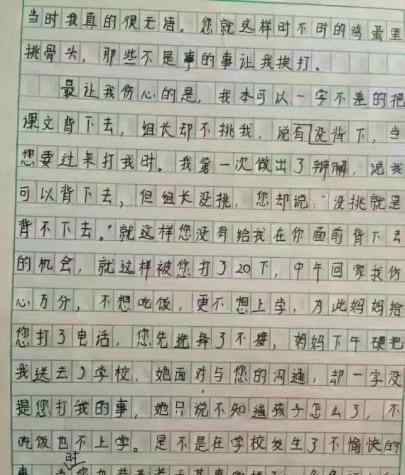 当时我真的很无语。您就这样时不时的鸡蛋里
挑骨头，那些不是事的事让我挨打。
最让我伤心的是，我本可以一字不差的把
课文背下去，组长却不挑我，说有没背下，当
您要过来打我时。我第一次做出了辩解，说我
可以背下去，但组长没挑，您却说："没挑就是
背不下去。"就这样您没有给我在你面前背下去
的机会，就这样被您打了20下，中午回家我伤
心万分，不想吃饭，更不想上学，为此妈妈给
您打了电话，您先选择了不接，妈妈下午硬把
我送去了学校，她面对与您的沟通，却一字没
提您打我的事，她只说不知道孩子怎么了，不
吃饭也不上学。是不是在学校发生了不愉快的
时